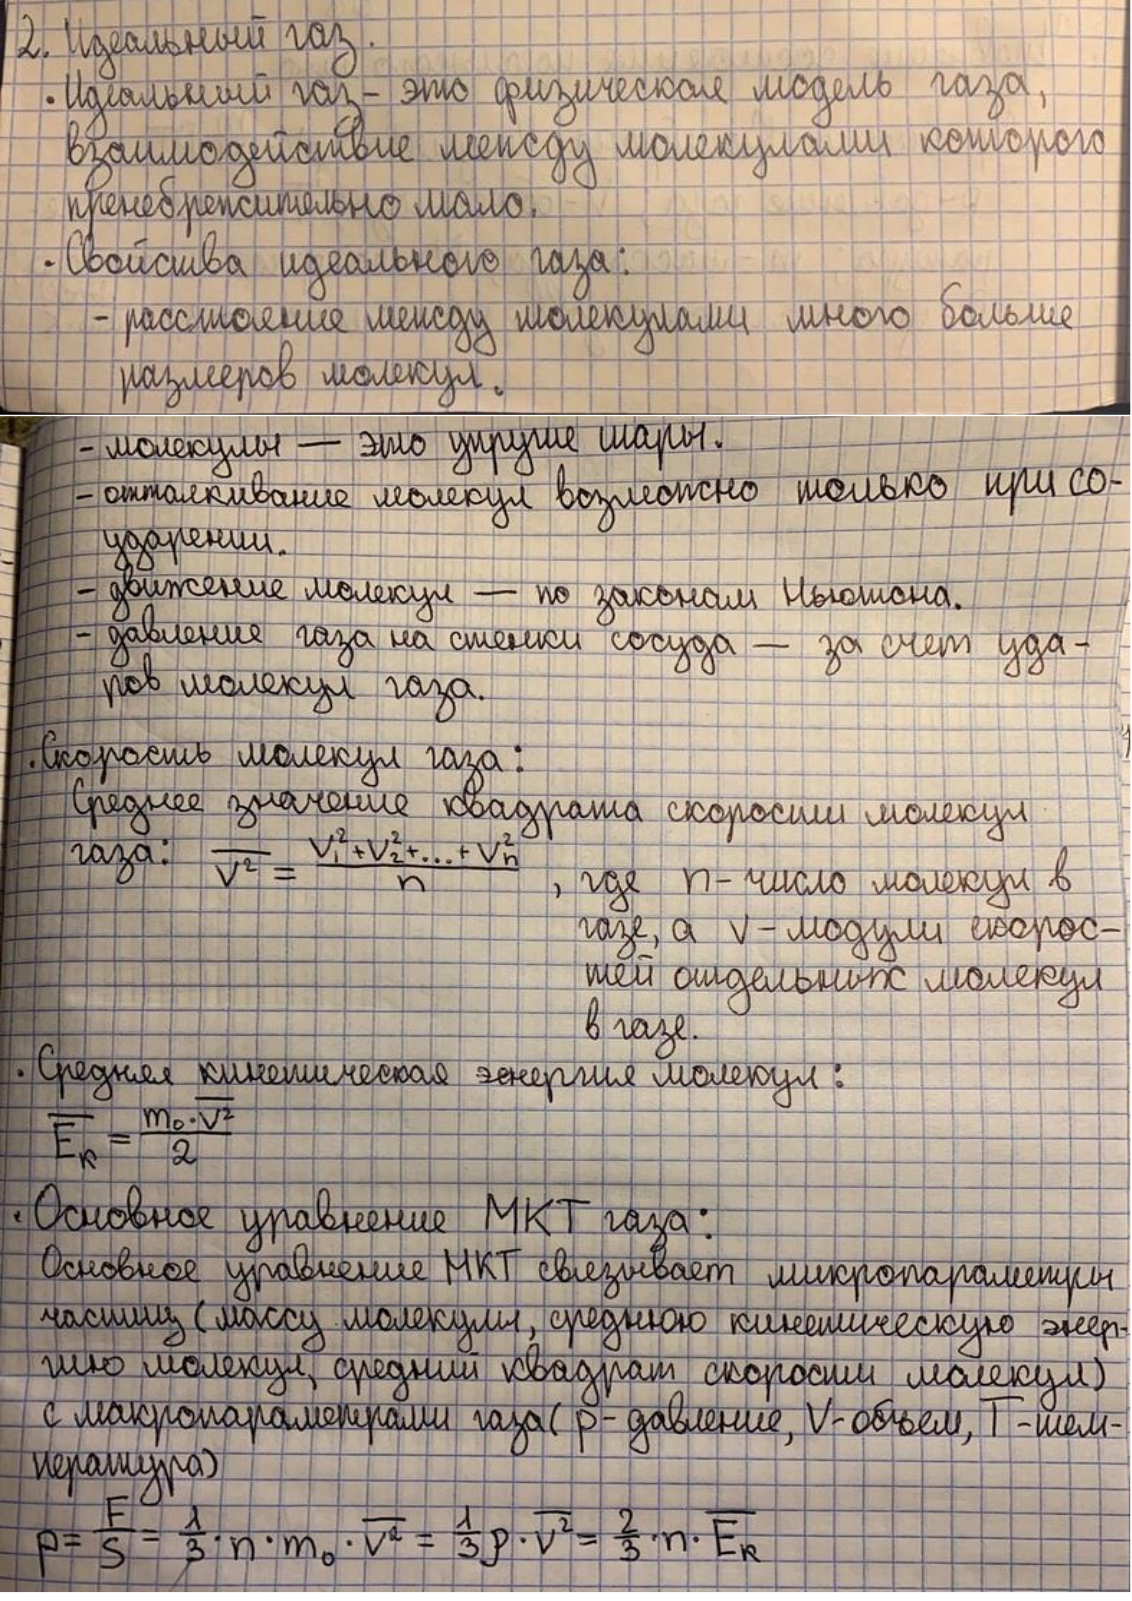 2. Идеальный газ.
· Идеальный газ – это физическая модель газа,
взаимодействие между молекулами которого
пренебрежительно мало.
· Свойства идеального газа:
- расстояние между молекулами много больше
размеров молекул.
- молекулы — это упругие шары.
- отталкивание молекул возможно только при со-
ударении.
- движение молекул — по законам Ньютона.
- давление газа на стенки сосуда — за счет уда-
ров молекул газа.
· Скорость молекул газа:
Среднее значение квадрата скорости молекул
газа: v̅²̅ = (v₁² + v₂² + ... + vₙ²) / n , где n - число молекул в
газе, а v - модули скорос-
тей отдельных молекул
в газе.
· Средняя кинетическая энергия молекул:
E̅ₖ = (m₀ · v̅²̅) / 2
· Основное уравнение МКТ газа:
Основное уравнение МКТ связывает микропараметры
частиц (массу молекулы, среднюю кинетическую энер-
гию молекул, средний квадрат скорости молекул)
с макропараметрами газа (p - давление, V - объем, T - тем-
пература)
p = F/S = 1/3 · n · m₀ · v̅²̅ = 1/3 ρ · v̅²̅ = 2/3 · n · E̅ₖ